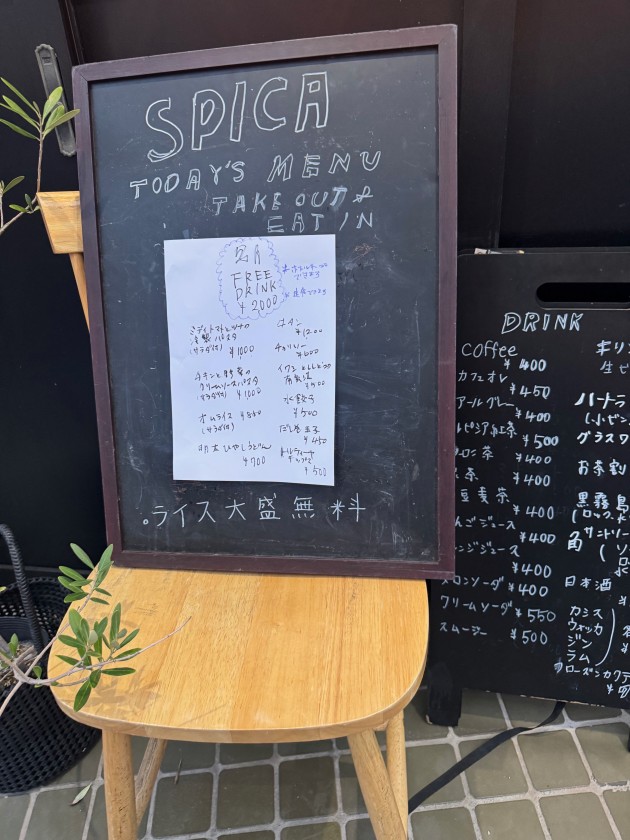 SPICA
TODAY'S MENU
TAKE OUT &
EAT IN
FREE
DRINK
¥2000
冷製パスタ
(サラダ付) ¥1000
チキンと野菜の
クリームソースパスタ
(サラダ付) ¥1000
オムライス ¥850
(サラダ付)
ひやしうどん
¥700
¥1200
チョリソー
¥600
水餃子
¥500
だし巻玉子
¥450
トルティーヤ
チップス
¥500
ライス大盛無料
DRINK
coffee
¥400
カフェオレ
¥450
アールグレー
¥400
ルピシア紅茶
¥500
茶
¥400
茶
¥400
豆麦茶
¥400
んごジュース
¥400
ンジジュース
¥400
ロンソーダ ¥400
クリームソーダ ¥550
スムージー ¥500
キリン
生ビ
ハートラ
(小ビン
グラスワ
お茶割
黒霧島
(ロック、
サントリー
角 (ソ
水
日本酒
カシス
ウォッカ
ジン
ラム
フローズンカクテ